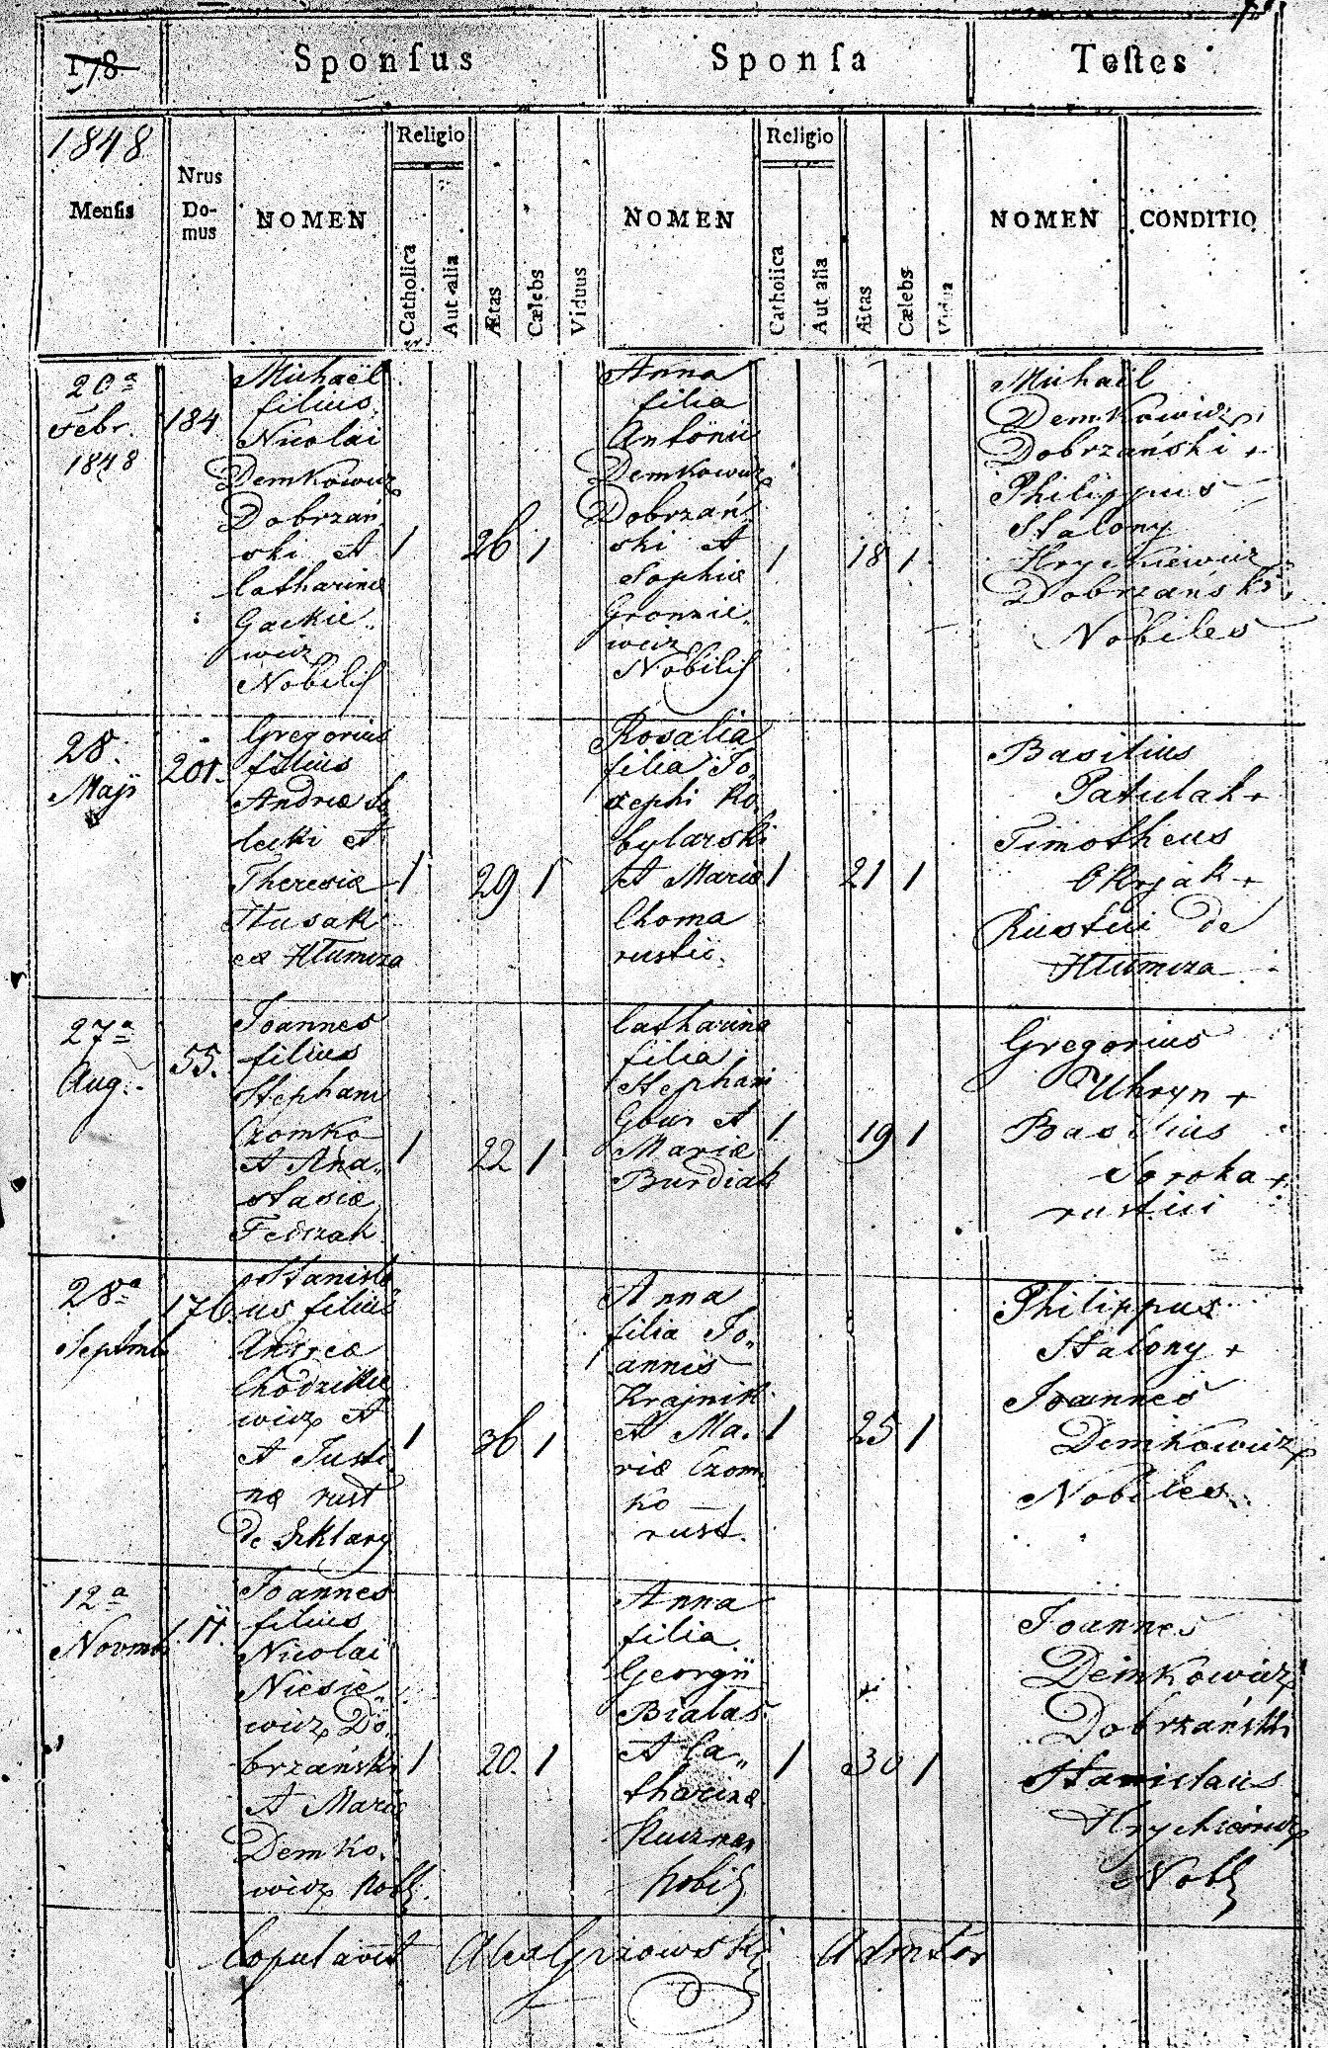 178
Sponsus Sponsa Testes
1848
Mensis
Nrus Do-
mus
NOMEN
Religio
Catholica
Aut alia
Ætas
Cælebs
Viduus
NOMEN
Religio
Catholica
Aut alia
Ætas
Cælebs
Vidua
NOMEN
CONDITIO
20a
Febr.
1848
184
Michaël
filius
Nicolai
Demkowicz
Dobrzań
ski et
Catharinæ
Gackie
wicz
Nobilis
1 26 1
Anna
filia
Antonii
Demkowicz
Dobrzań
ski et
Sophiæ
Gronzie
wicz
Nobilis
1 18 1
Michaël
Demkowicz
Dobrzański +
Philippus
Stalony
Hryckiewicz
Dobrzański
Nobiles
28.
Maji
201.
Gregorius
filius
Andreæ So
lecki et
Theresiæ
Husak
ex Hłumcza
1 29 1
Rosalia
filia Jo
sephi Ko
bylarski
et Mariæ
Choma
rustic.
1 21 1
Basilius
Patulak +
Timotheus
+
Rustici de
Hłumcza
27a
Aug.
55.
Joannes
filius
Stephani
Czomko
et Ana
stasiæ
Fedczak
1 22 1
Catharina
filia
Stephani
Gbur et
Mariæ
Burdiak
1 19 1
Gregorius
Uhryn +
Basilius
Soroka +
rustici
28a
Septmb
176.
Stanisla
us filius
Andreæ
Chodzikie
wicz et
et Justi
næ rust
de Szklary
1 36 1
Anna
filia Jo
annis
Krajnik
et Ma
riæ Czom
ko
rust.
1 25 1
Philippus
Stalony +
Joannes
Demkowicz
Nobiles
12a
Novmb.
11.
Joannes
filius
Nicolai
Niesie
wicz Do
brzański
et Mariæ
Demko
wicz Nobl
1 20. 1
Anna
filia
Georgii
Białas
et Ca
tharinæ
Kuzmar
Nobil
1 30 1
Joannes
Demkowicz
Dobrzański
Stanislaus
Hryckiewicz
Nobl
Copulavit Admtor